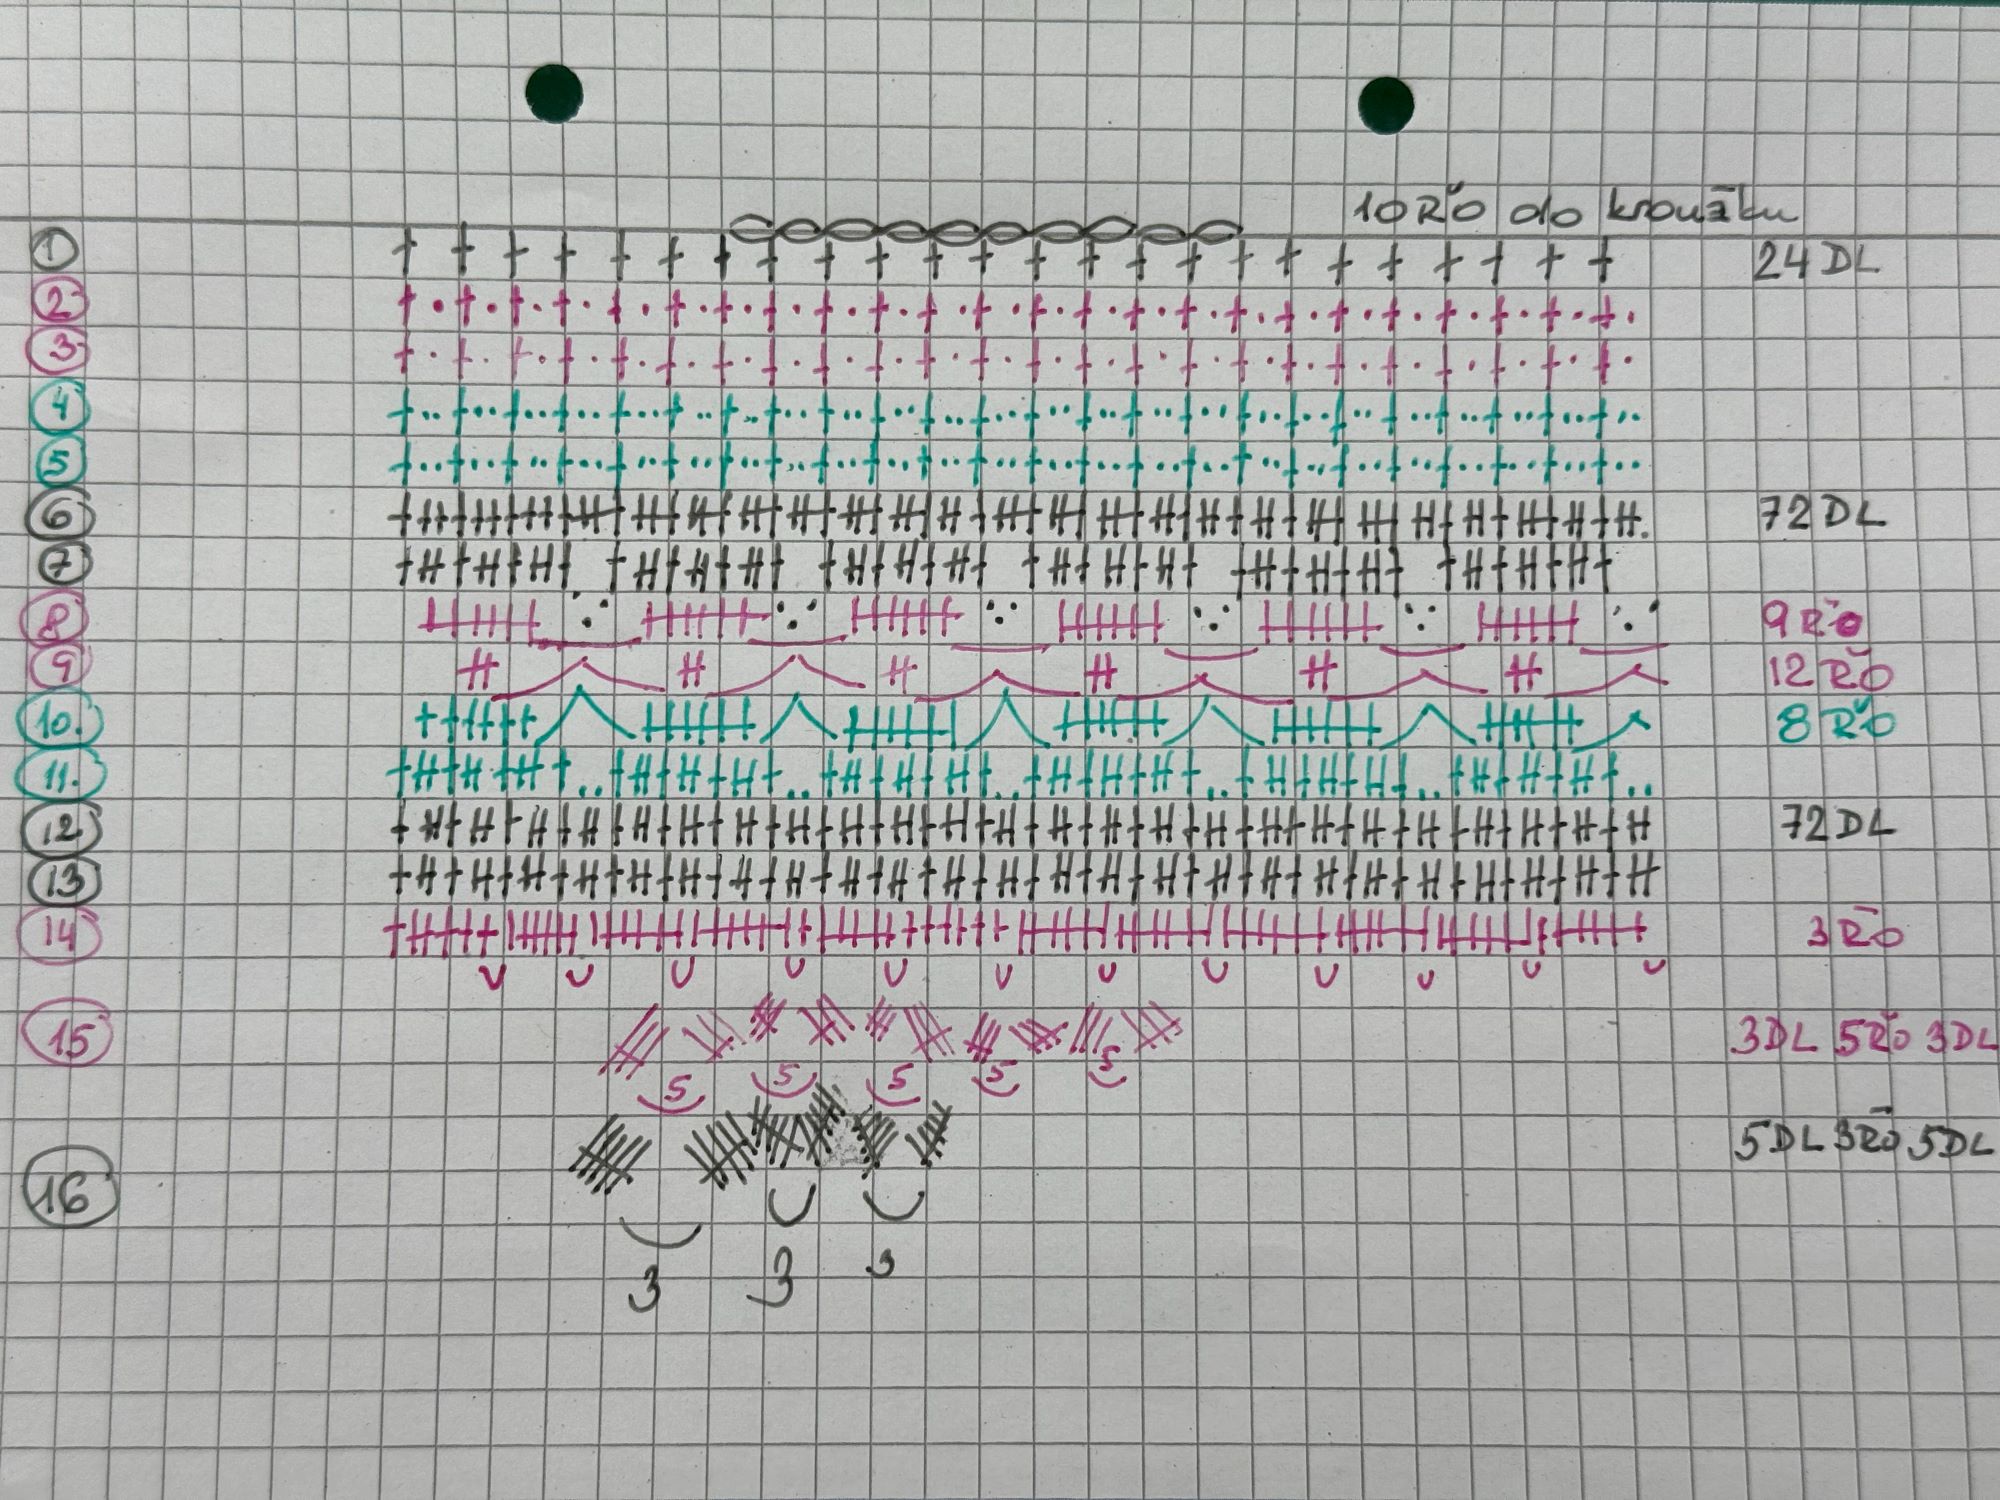 10 Řo do kroužku
1 24 DL
2
3
4
5
6 72 DL
7
8 9 Řo
9 12 Řo
10. 8 Řo
11.
12 72 DL
13
14 3 Řo
15 3DL 5Řo 3DL
5 5 5 5 5
16 5DL 3Řo 5DL
3 3 3